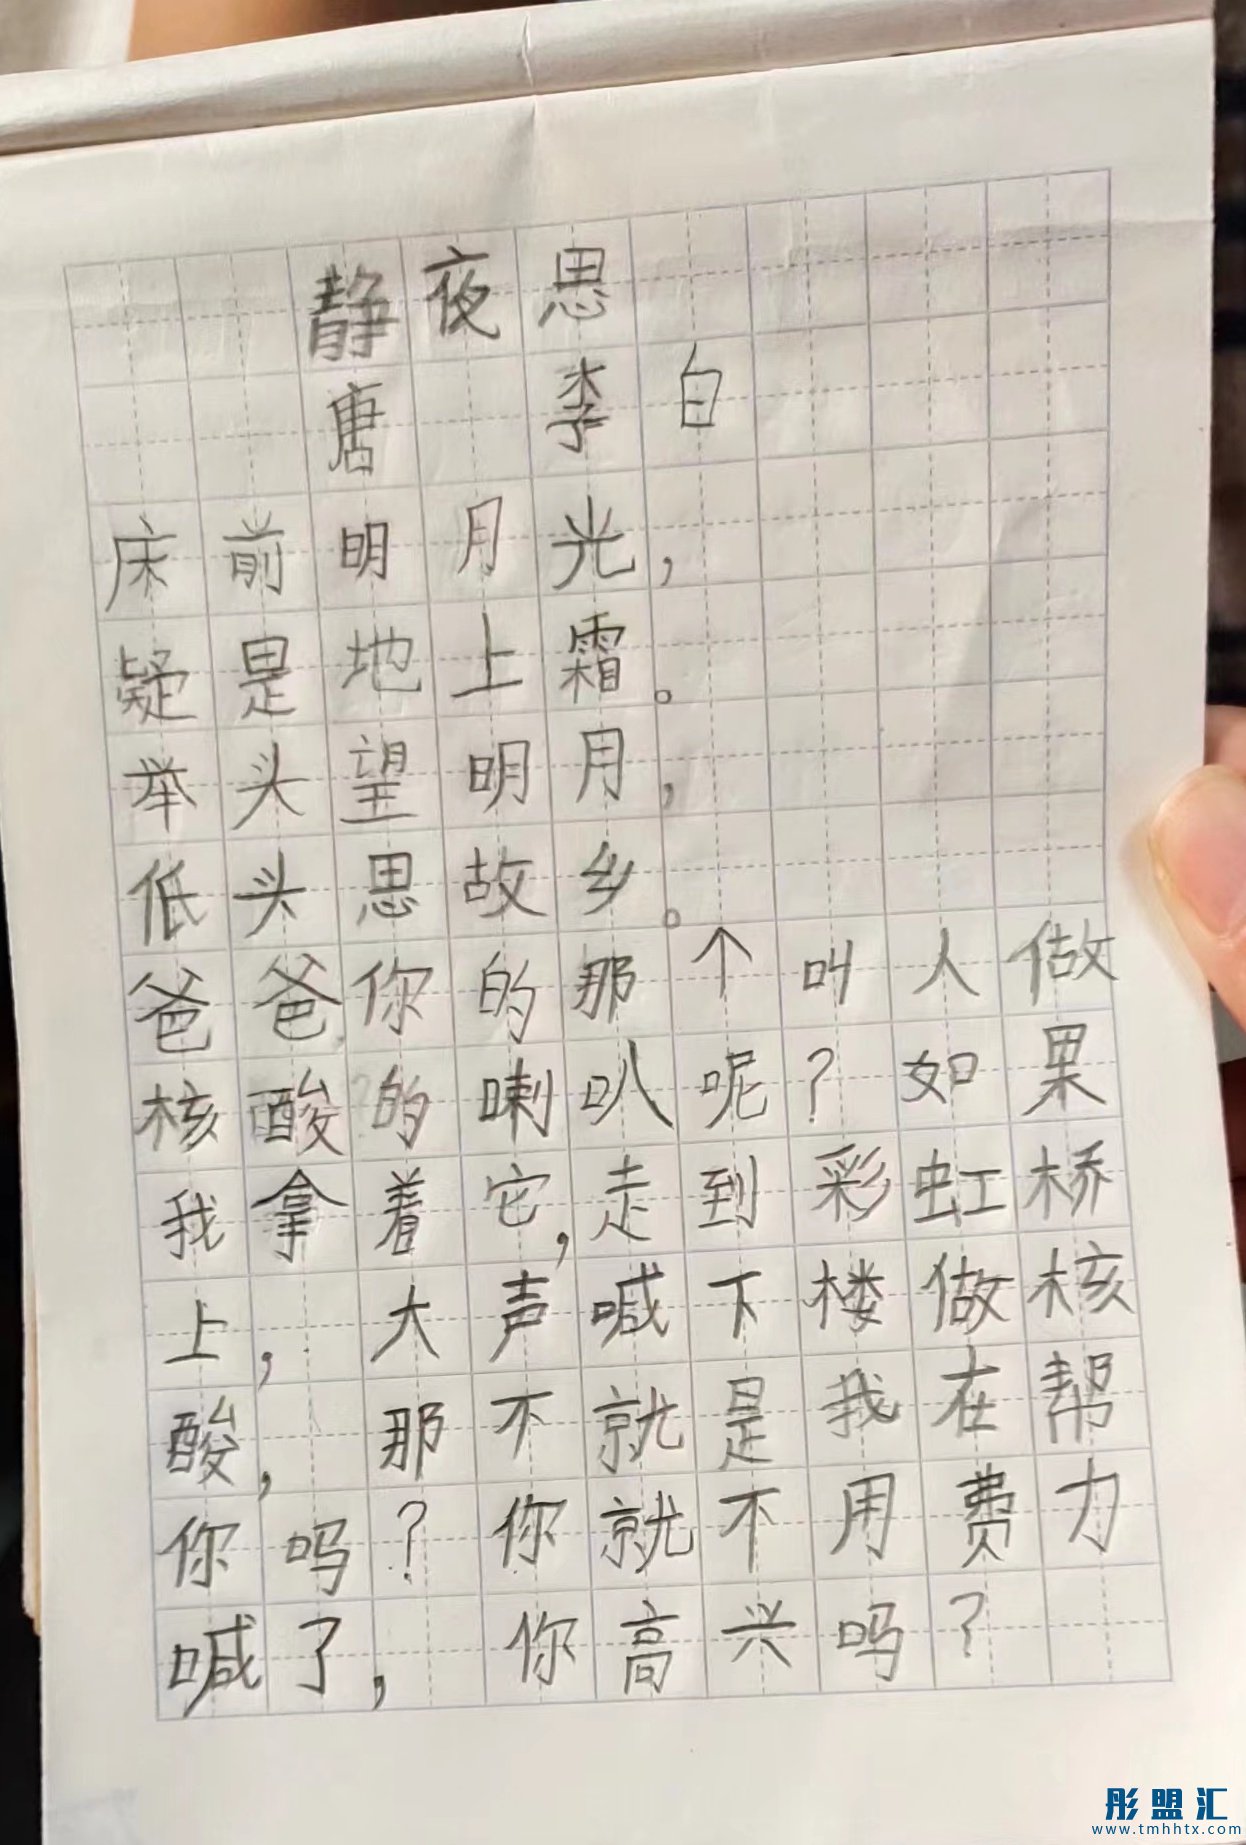 静夜思
唐 李白
床前明月光，
疑是地上霜。
举头望明月，
低头思故乡。
爸爸你的那个叫人做
核酸的喇叭呢？如果
我拿着它，走到彩虹桥
上，大声喊下楼做核
酸，那不就是我在帮
你吗？你就不用费力
喊了，你高兴吗？
彤盟汇
www.tmhhtx.com